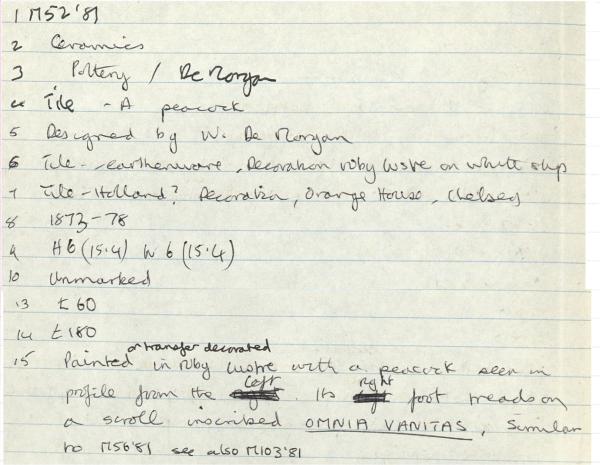 1 M52'81
2 Ceramics
3 Pottery / De Morgan
4 Tile - A peacock
5 Designed by W. De Morgan
6 Tile - earthenware, Decoration ruby lustre on white slip
7 Tile - Holland? Decoration, Orange House, Chelsea
8 1873-78
9 H 6 (15.4) W 6 (15.4)
10 Unmarked
13 £60
14 £180
or transfer decorated
15 Painted in ruby lustre with a peacock seen in
left right
profile from the . Its foot treads on
a scroll inscribed OMNIA VANITAS, Similar
to M56'81 see also M103'81